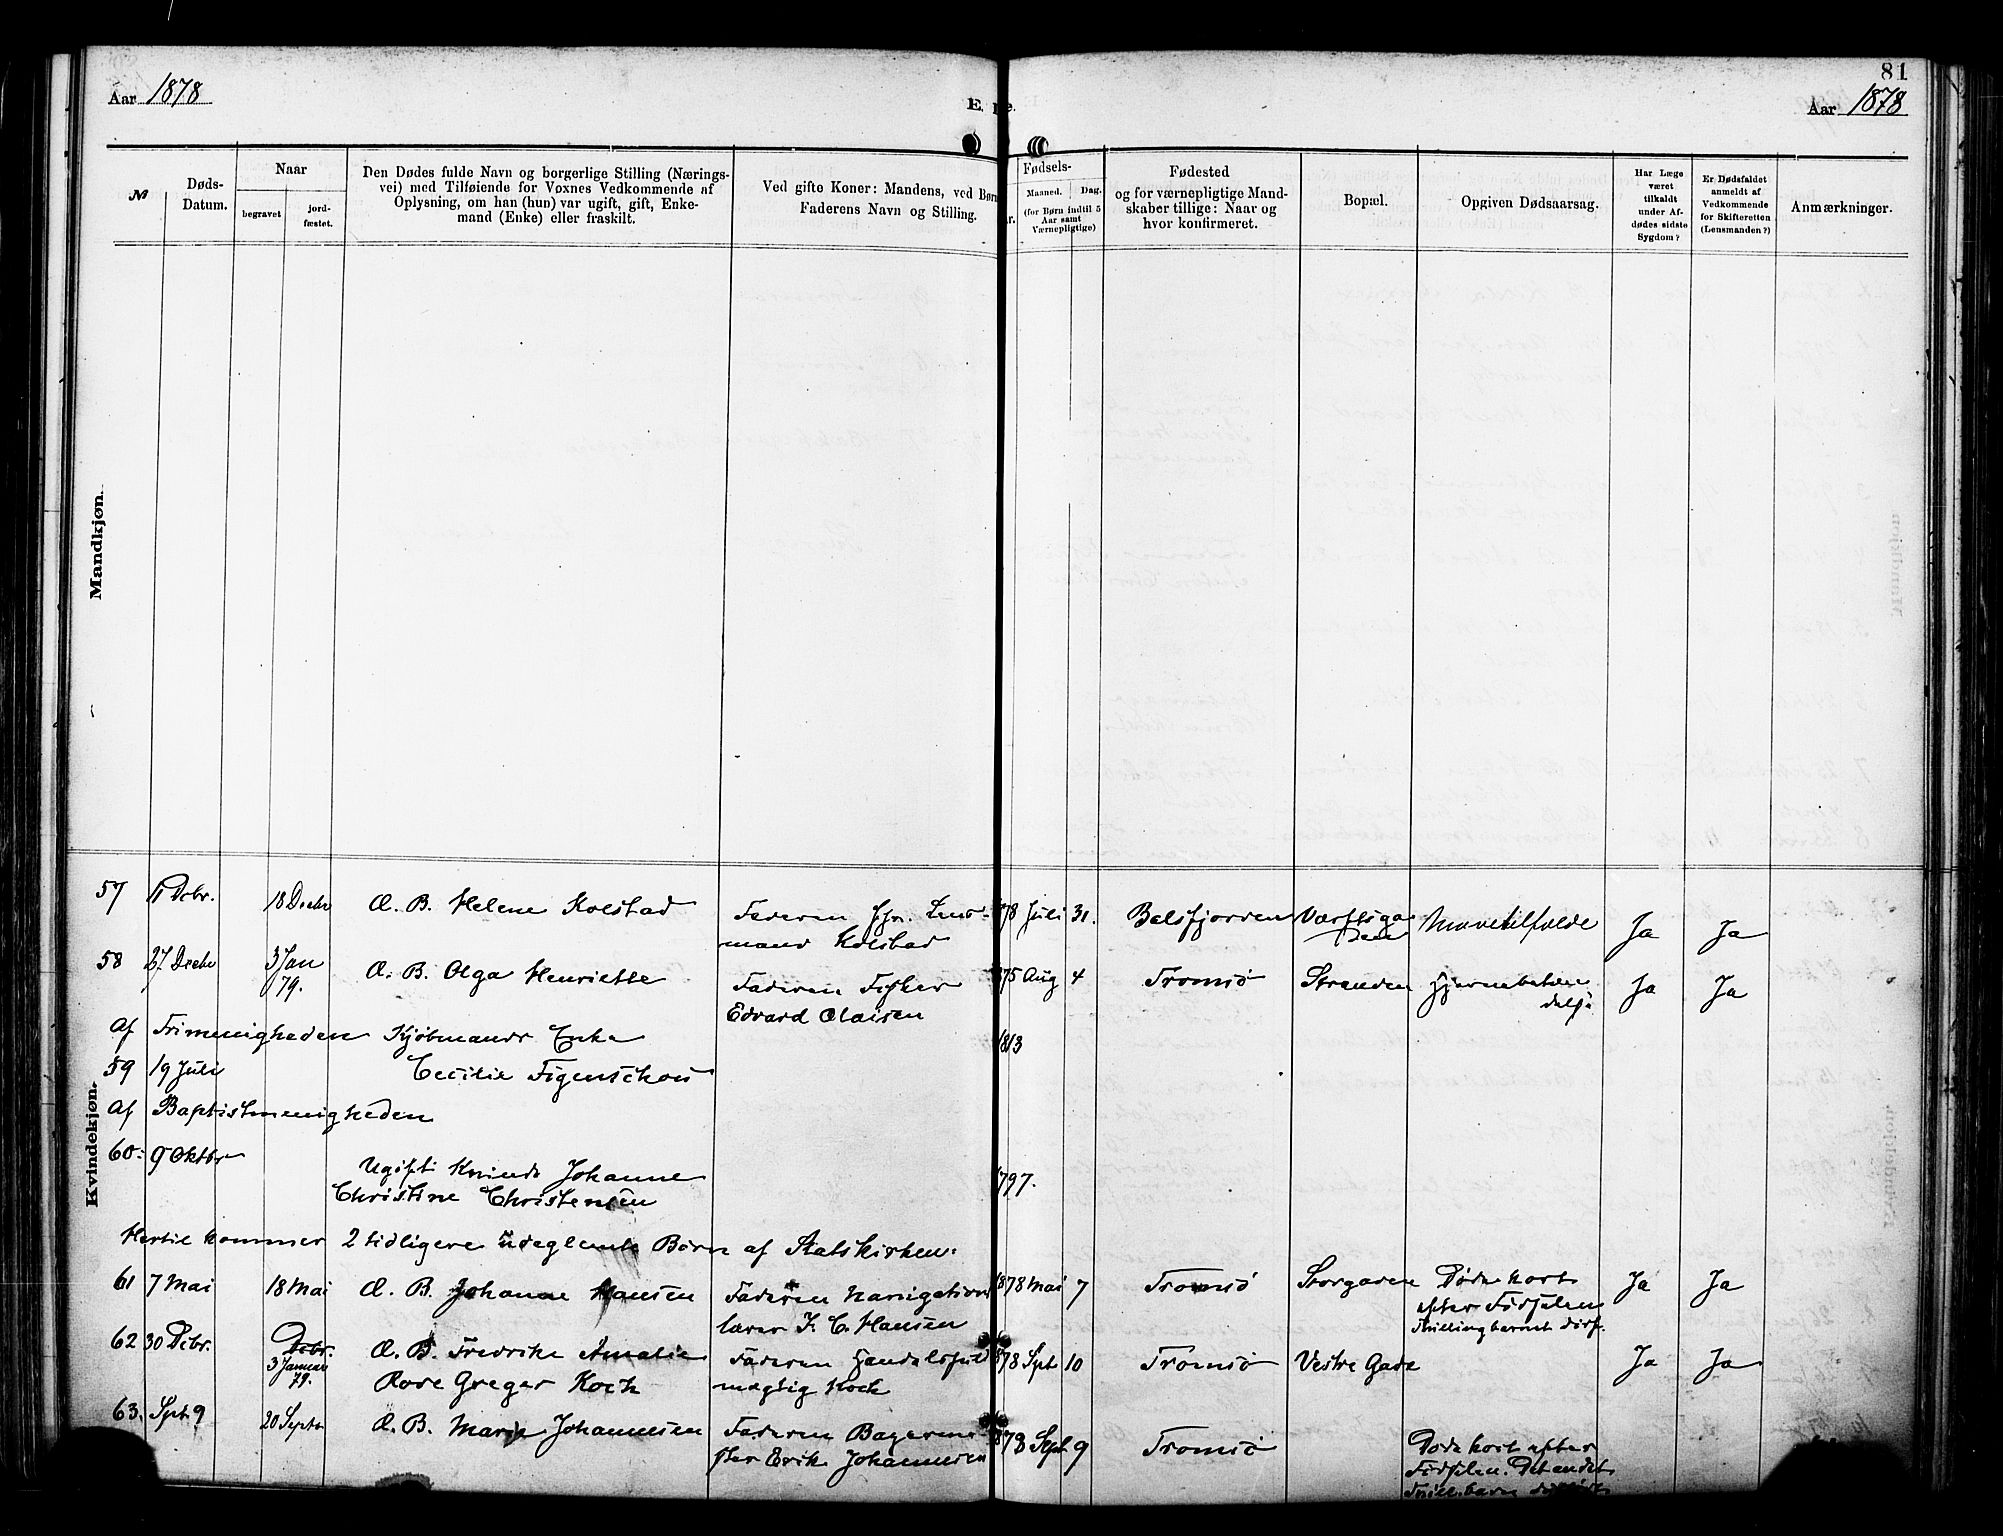 81
Aar 1878
Aar 1878
E.
№
Døds-
Datum.
Naar
begravet
jord-
fæstet.
Den Dødes fulde Navn og borgerlige Stilling (Nærings-
vei) med Tilføiende for Voxnes Vedkommende af
Oplysning, om han (hun) var ugift, gift, Enke-
mand (Enke) eller fraskilt.
Ved gifte Koner: Mandens, ved Børn
Faderens Navn og Stilling.
Fødsels-
Maaned. Dag.
(for Børn indtil 5
Aar samt
Værnepligtige)
Fødested
og for værnepligtige Mand-
skaber tillige: Naar og
hvor konfirmeret.
Bopæl.
Opgiven Dødsaarsag.
Har Læge
været
tilkaldt
under Af-
dødes sidste
Sygdom?
Er Dødsfaldet
anmeldt af
Vedkommende
for Skifteretten
(Lensmanden?)
Anmærkninger.
Mandkjøn.
Kvindekjøn.
57 11 Decbr. 18 Decbr Æ. B. Helene Kolstad Faderen Lens-
mand Kolstad 78 Juli 31. Balsfjorden Værftsga
den Mavetilfælde Ja Ja
58 27 Decbr 3 Jan
79. Æ. B. Olga Henriette Faderen Fisker
Edvard Olaisen 875 Aug 4 Tromsø Stranden Hjernebetæn
delse Ja Ja
Af Frimenigheden Kjøbmands Enke 1813
59 19 Juli Cecilie Figenschou
Af Baptistmenigheden
60. 9 Oktbr Ugift Kvinde Johanne
Christine Christensen 1797.
Hertil kommer 2 tidligere udeglemte Børn af Statskirken:
61 7 Mai 18 Mai Æ. B. Johanne Hansen Faderen Navigation
lærer K. C. Hansen 1878 Mai 7 Tromsø Storgaden Døde kort
efter Fødselen
Tvillingbarnet Ja Ja
62 30 Dcbr. Dcbr.
3 Januar
79. Æ. B. Fredrike Amalie
Rose Greger Koch Faderen Handelsfuld
mægtig Koch 878 Spt 10 Tromsø Vestre Gade Ja Ja
63. Spt. 9 20 Septbr Æ. B. Marie Johannesen Faderen Bagerme
ster Erik Johannesen 1878 Spt 9 Tromsø Døde kort efter
Fødselen. Det andet